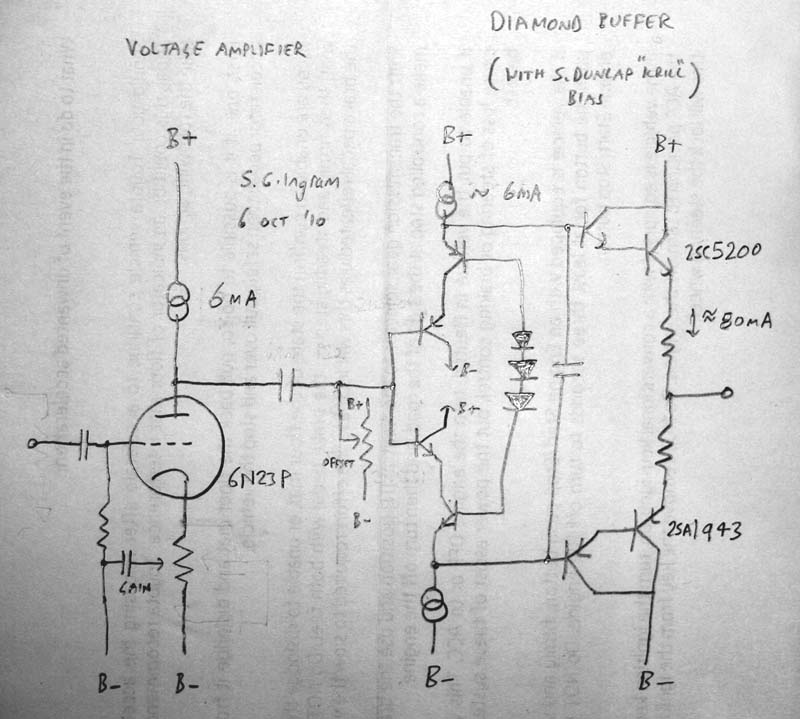 DIAMOND BUFFER
(WITH S. DUNLAP "KRILL")
BIAS
VOLTAGE AMPLIFIER
B+
S. G. Ingram
6 OCT '10
6MA
B+
≈ 6MA
B+
2SC5200
↓≈80MA
B-
B+
B+
OFFSET
B-
6N23P
GAIN
2SA1943
B-
B-
B-
B-